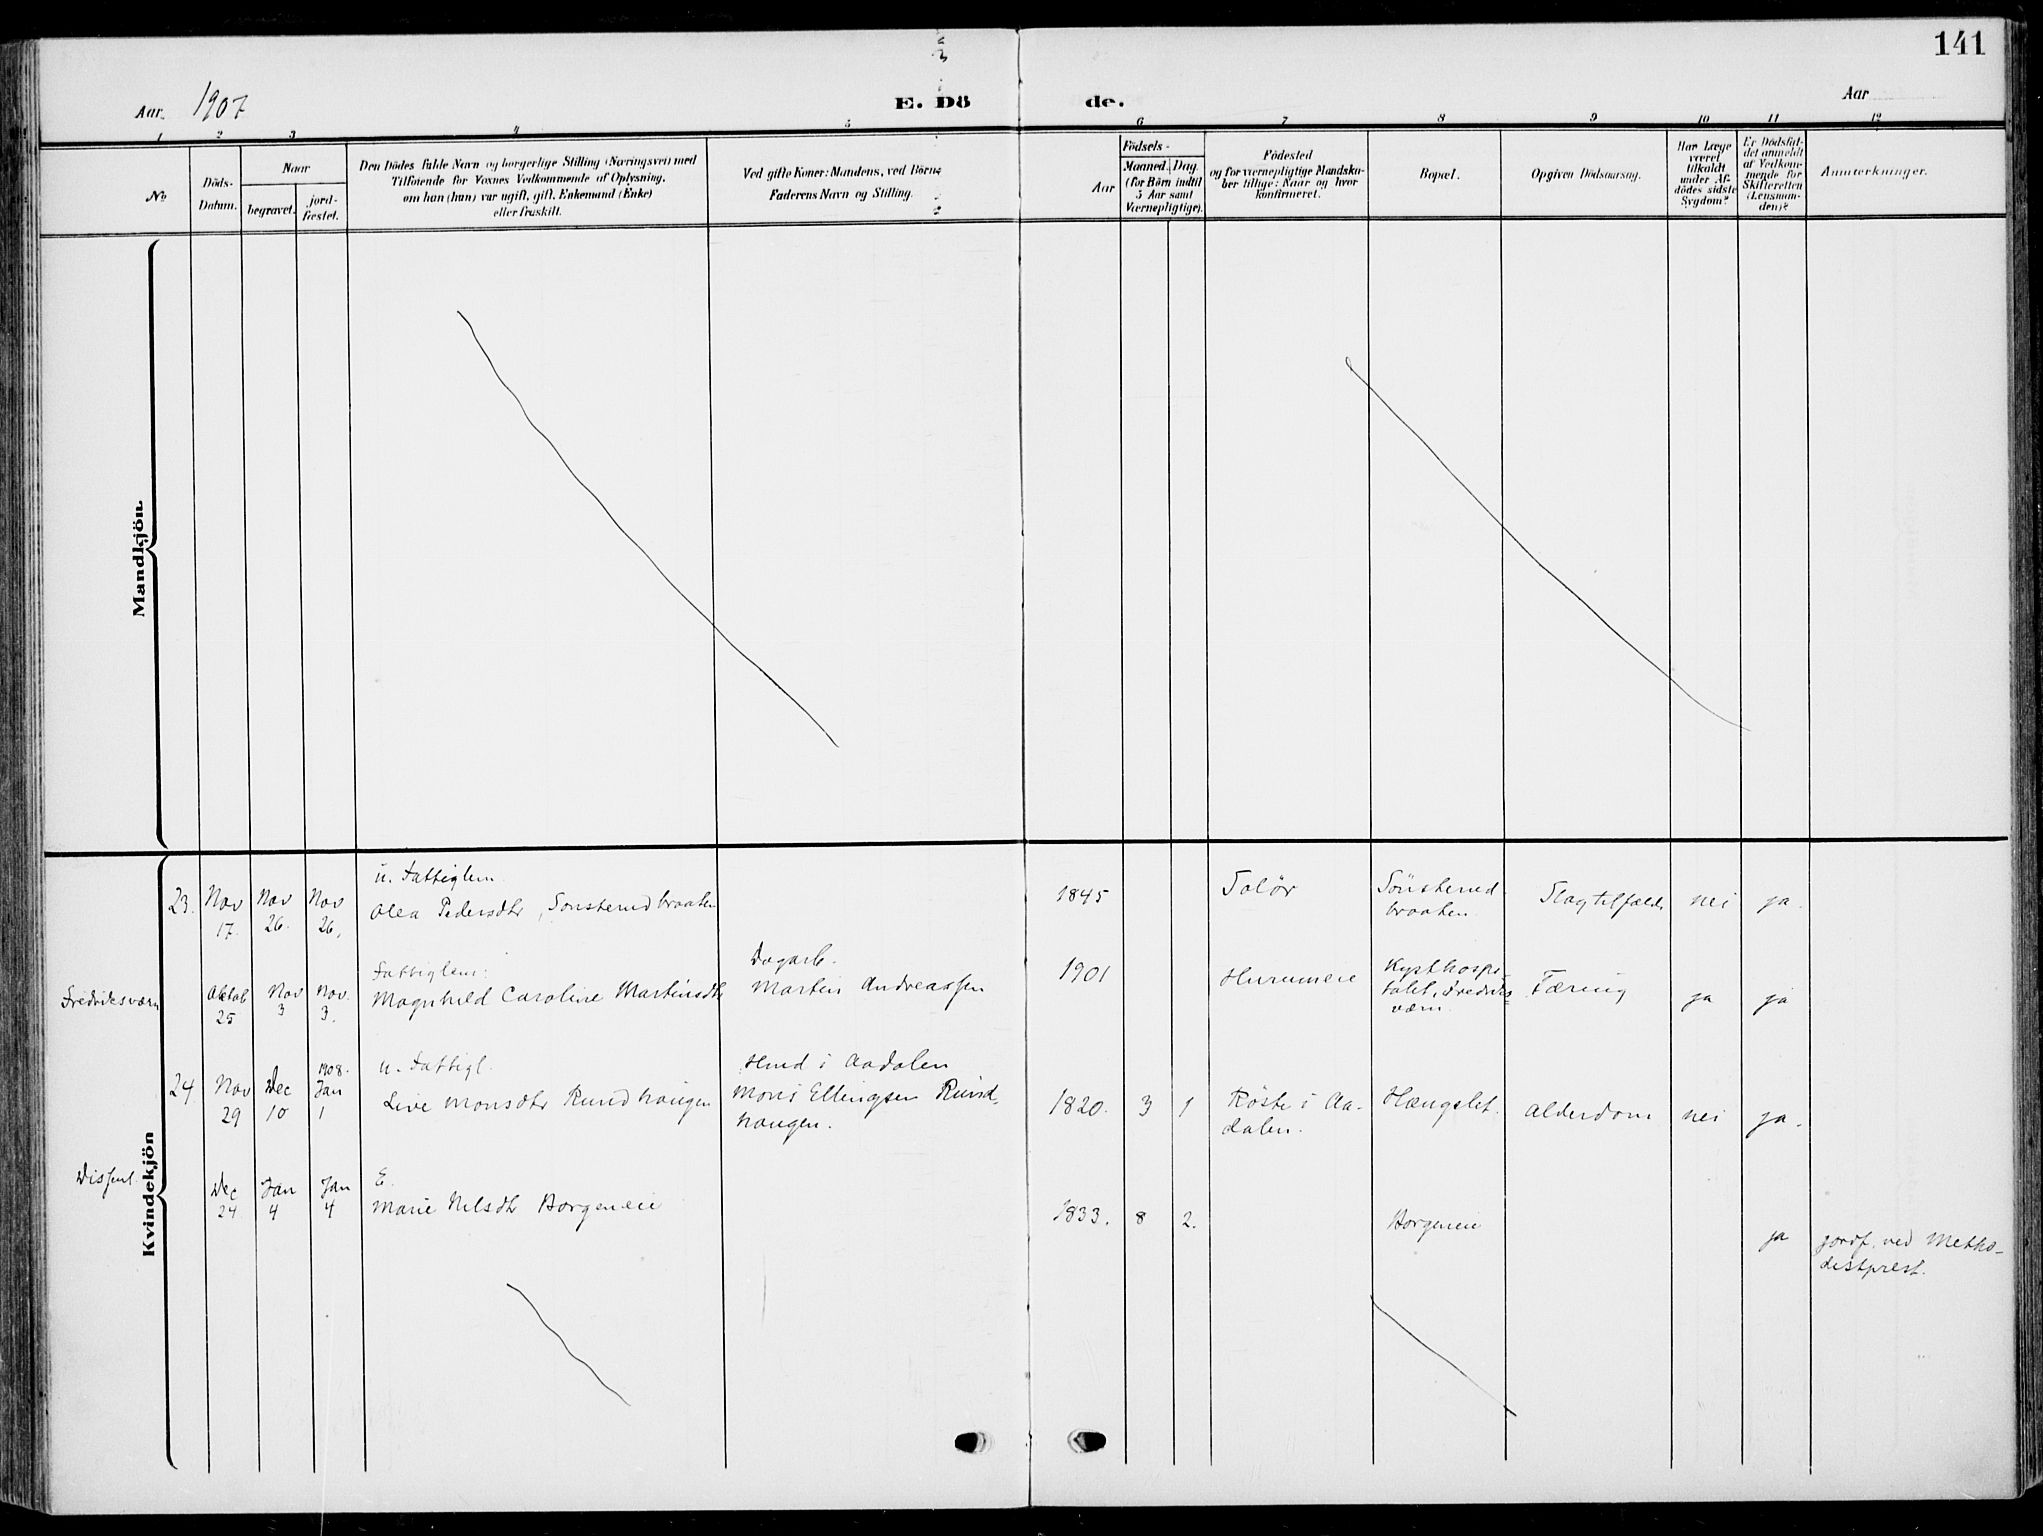 141
Aar 1907
E. Dö de.
Aar
1 2 3 4 5 6 7 8 9 10 11 12
No
Döds-
Datum.
Naar
begravet.
jord-
fæstet.
Den Dödes fulde Navn og borgerlige Stilling (Næringsvei) med
Tilföiende for Voxnes Vedkommende af Oplysning,
om han (hun) var ugift, gift, Enkemand (Enke)
eller fraskilt.
Ved gifte Koner: Mandens, ved Börn:
Faderens Navn og Stilling.
Födsels-
Aar
Maaned. Dag.
(for Börn indtil
5 Aar samt
Værnepligtige).
Födested
og for værnepligtige Mandska-
ber tillige: Naar og hvor
konfirmeret.
Bopæl.
Opgiven Dödsaarsag.
Har Læge
været
tilkaldt
under Af-
dödes sidste
Sygdom?
Er Dödsfal-
det anmeldt
af Vedkom-
mende for
Skifteretten
(Lensman-
den)?
Anmærkninger.
Mandkjön.
Kvindekjön
23. Nov 17. Nov 26. Nov 26.
u. Fattiglem.
Olea Pedersdtr, Sönsterudbraaten
1845
Solör
Sönsterud-
braaten.
Slagtilfælde
nei
ja.
Fredriksværn
Oktob 25 Nov 3 Nov. 3.
Fattiglem.
Magnhild Caroline Martinsdtr
Dagarb.
Martin Andreassen
1901
Hurumeie
Kysthospi-
talet, Fredriks-
værn.
Tæring
ja
ja
24 Nov 29 Dec 10 1908. Jan 1
u. Fattigl.
Live Monsdtr Rundhaugen
Hmd i Aadalen
Mons Ellingsen Rund-
haugen.
1820. 3 1
Röste i Aa-
dalen.
Hængslet.
Alderdom
nei
ja.
Dissent.
Dec 24 Jan 4 Jan 4
E.
Marie Nilsdtr Borgeneie
1833. 8 2.
Borgeneie
ja
jordf. ved Metho-
distprest.